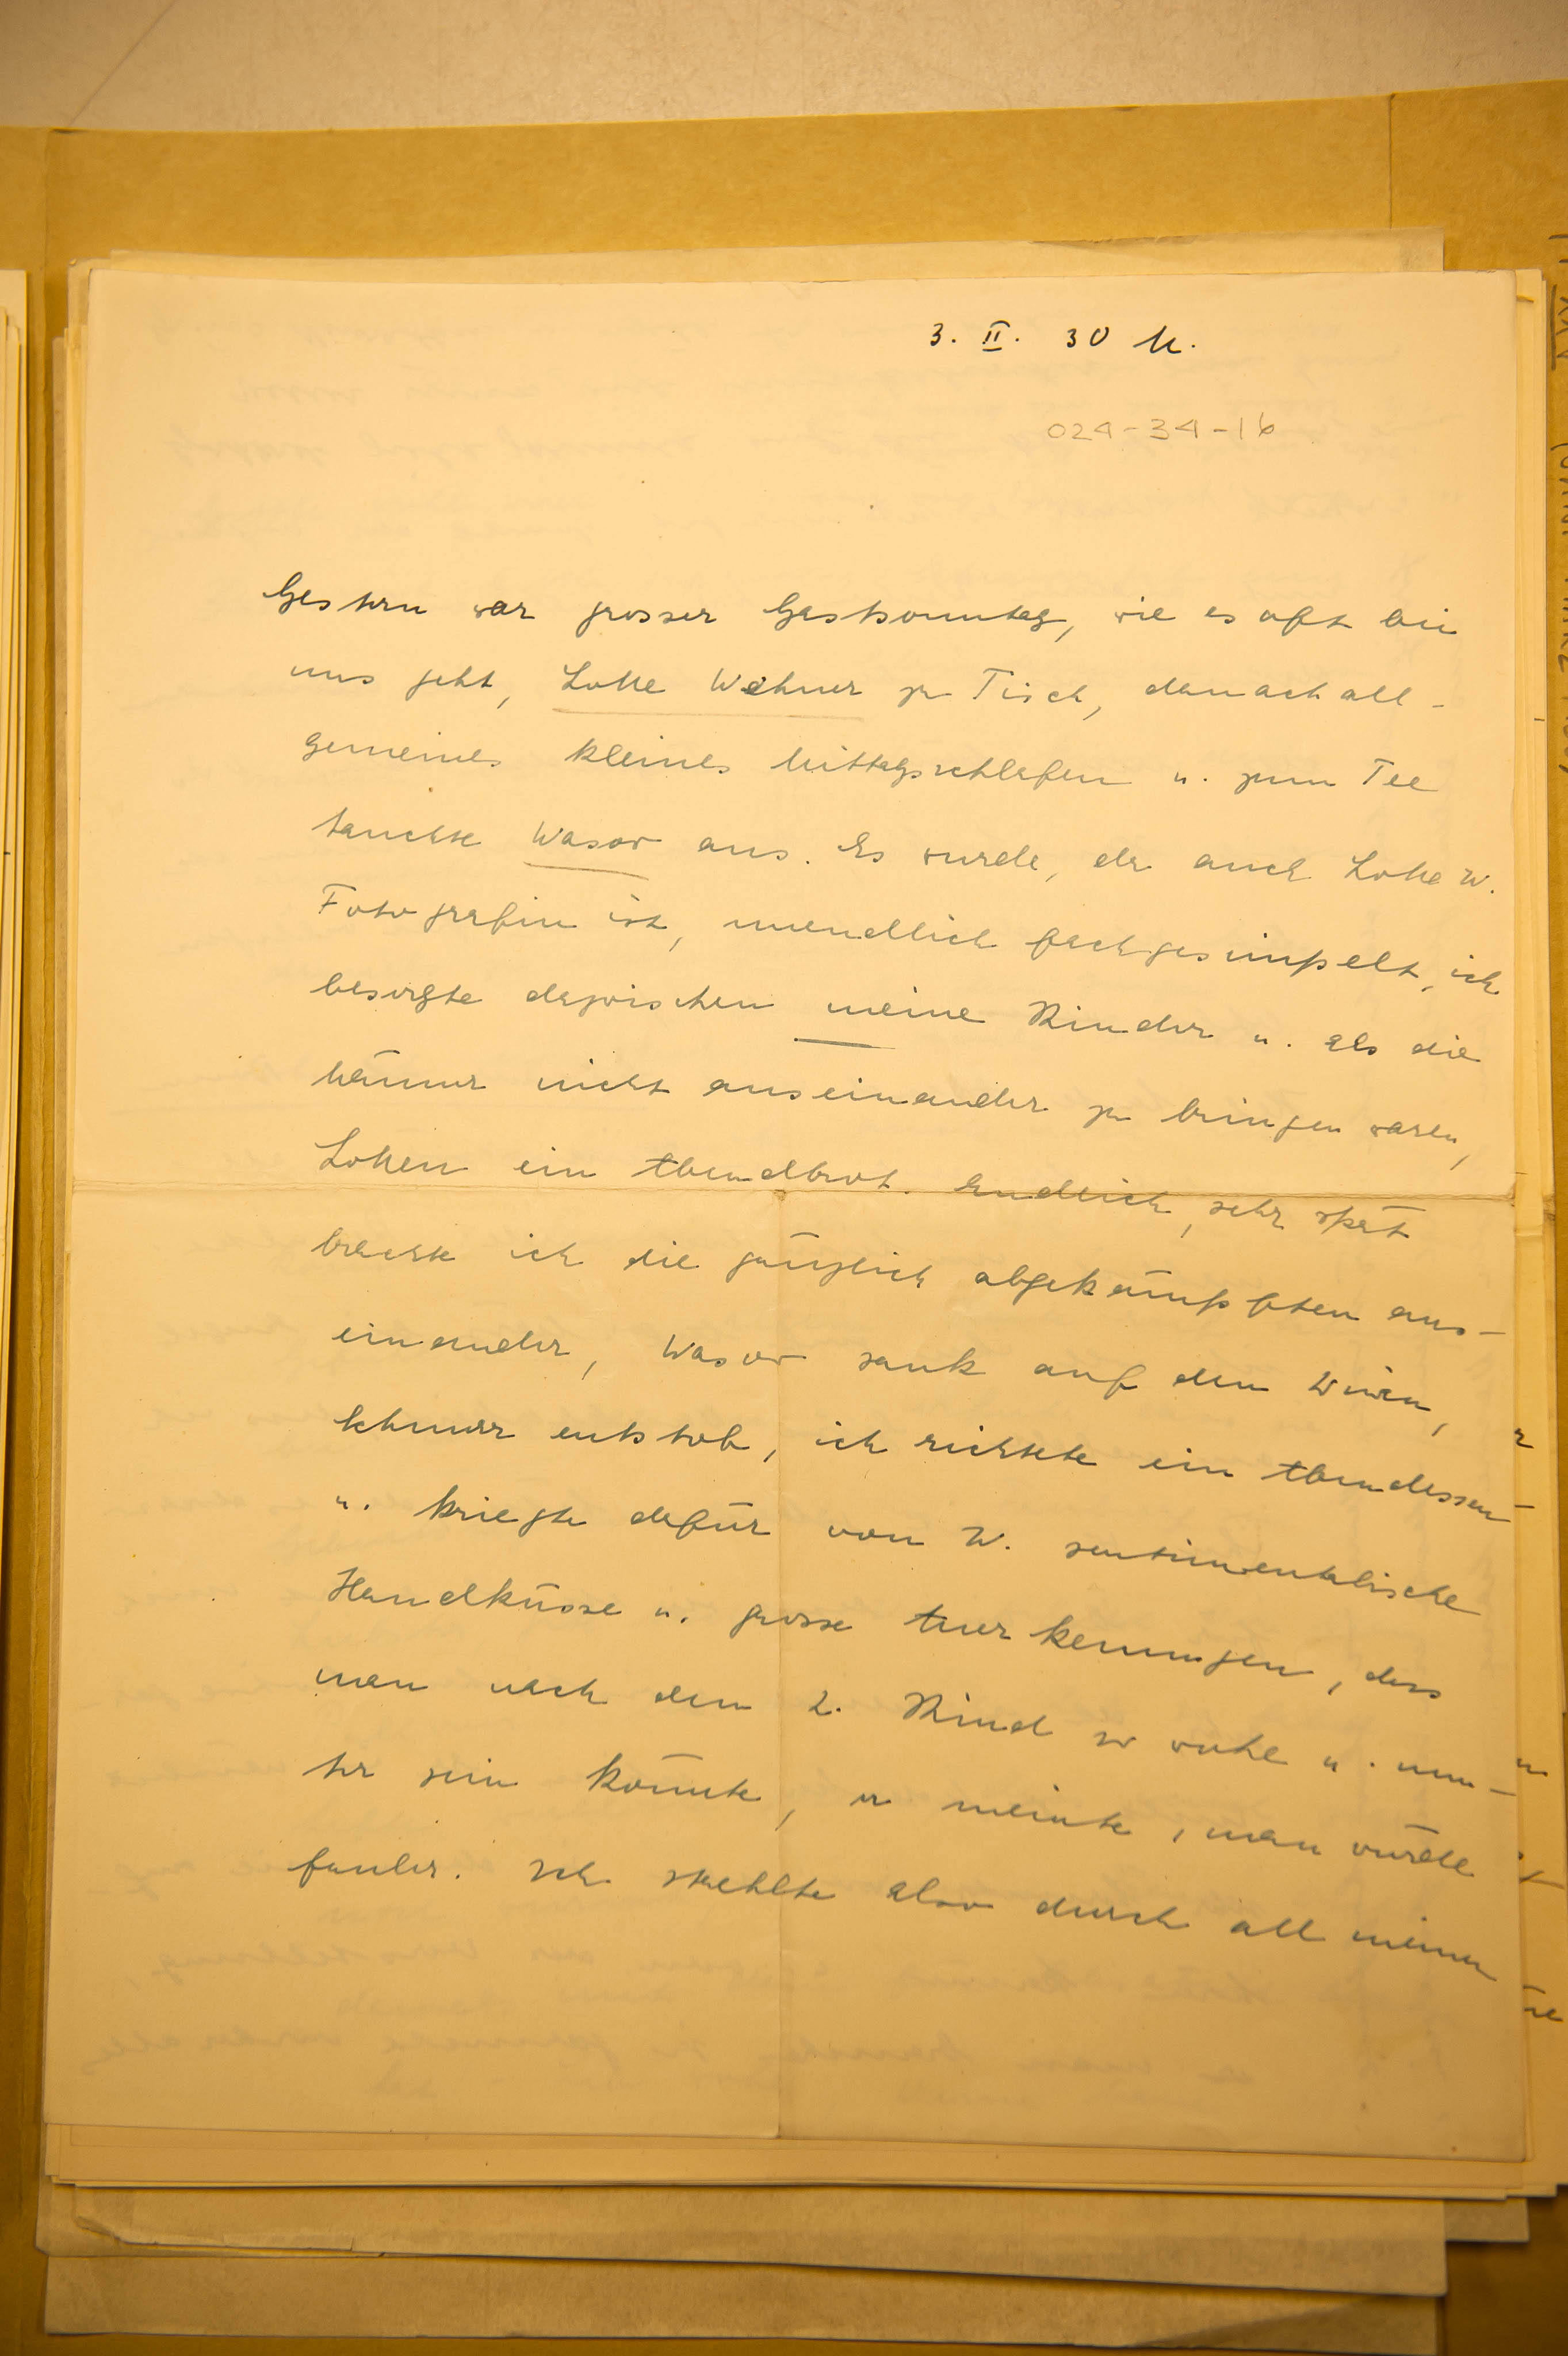 3. II. 30 M.
024-34-16
Gestern war grosser Gastsonntag, wie es oft bei
uns geht, Lotte Wehner zu Tisch, danach all-
gemeines kleines Mittagsschlafen u. zum Tee
tauchte Wasow aus. Es wurde, da auch Lotte W.
Fotografin ist, unendlich fachgesimpelt, ich
besorgte dazwischen meine Kinder u. als die
Männer nicht auseinander zu bringen waren,
Lotten ein Abendbrot. Endlich, sehr spät
brachte ich die gänzlich abgekämpften aus-
einander, Wasow sank auf den
entstob, ich richtete ein Abendessen
u. kriegte dafür von W. sentimentalische
Handküsse u. grosse Anerkennungen, dass
man nach dem 2. Kind so wohl u. mun-
ter sein könnte, er meinte, man würde
fauler. Ich strahlte also durch all meinen